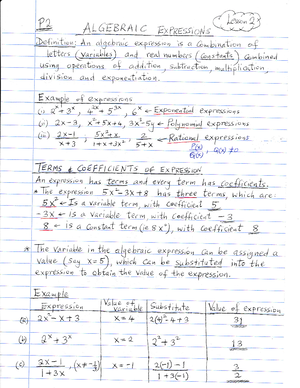 P2
ALGEBRAIC EXPRESSIONS
Lesson 2
Definition: An algebraic expression is a combination of
letters (variables) and real numbers (constants) combined
using operations of addition, subtraction, multiplication,
division and exponentiation.
Example of expressions
(i) 2ˣ+3ˣ, 4²ˣ+5⁻³ˣ, 6ˣ ← Exponential expressions
(ii) 2x-3, x²+5x+4, 3x³-5y ← Polynomial expressions
(iii) (2x-1)/(x+3), (5x²+x)/(1+x+3x²), 2/(5+x) ← Rational expressions
P(x)/Q(x), Q(x) ≠ 0
TERMS & COEFFICIENTS OF EXPRESSION
An expression has terms and every term has coefficients.
* The expression 5x²-3x+8 has three terms, which are:
5x² ← Is a variable term, with coefficient 5
-3x ← is a variable term with coefficient -3
8 ← is a constant term (ie 8x⁰), with coefficient 8
* The variable in the algebraic expression can be assigned a
value (say x=5), which can be substituted into the
expression to obtain the value of the expression.
Example
Expression | Value of variable | Substitute | Value of expression
(a) 2x²-x+3 | x=4 | 2(4)²-4+3 | 31
(b) 2ˣ+3ˣ | x=2 | 2²+3² | 13
(c) (2x-1)/(1+3x), (x≠-⅓) | x=-1 | (2(-1)-1)/(1+3(-1)) | 3/2